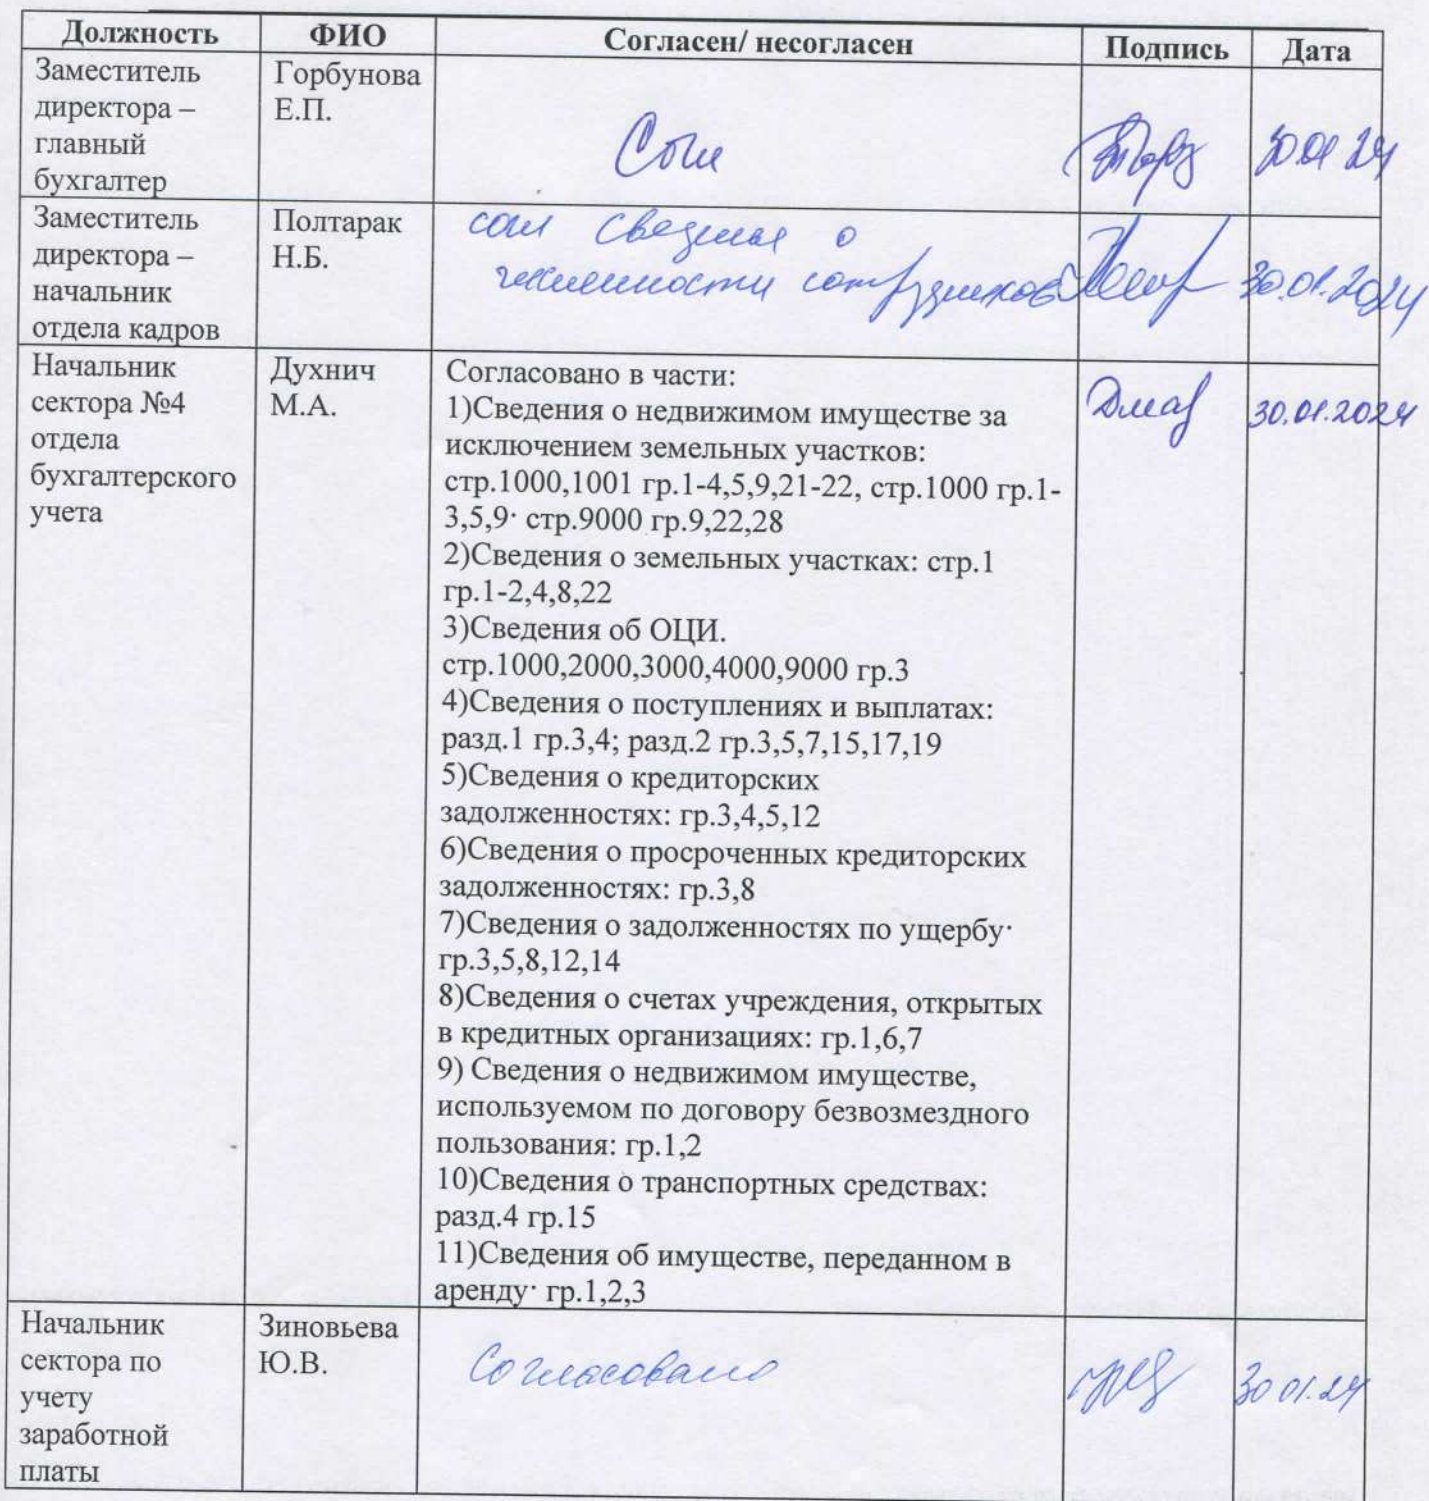 Должность ФИО Согласен/ несогласен Подпись Дата
Заместитель
директора –
главный
бухгалтер
Горбунова
Е.П.
Согл
30 01 24
Заместитель
директора –
начальник
отдела кадров
Полтарак
Н.Б.
согл сведения о
численности сотрудников
30.01.2024
Начальник
сектора №4
отдела
бухгалтерского
учета
Духнич
М.А.
Согласовано в части:
1)Сведения о недвижимом имуществе за
исключением земельных участков:
стр.1000,1001 гр.1-4,5,9,21-22, стр.1000 гр.1-
3,5,9· стр.9000 гр.9,22,28
2)Сведения о земельных участках: стр.1
гр.1-2,4,8,22
3)Сведения об ОЦИ.
стр.1000,2000,3000,4000,9000 гр.3
4)Сведения о поступлениях и выплатах:
разд.1 гр.3,4; разд.2 гр.3,5,7,15,17,19
5)Сведения о кредиторских
задолженностях: гр.3,4,5,12
6)Сведения о просроченных кредиторских
задолженностях: гр.3,8
7)Сведения о задолженностях по ущербу·
гр.3,5,8,12,14
8)Сведения о счетах учреждения, открытых
в кредитных организациях: гр.1,6,7
9) Сведения о недвижимом имуществе,
используемом по договору безвозмездного
пользования: гр.1,2
10)Сведения о транспортных средствах:
разд.4 гр.15
11)Сведения об имуществе, переданном в
аренду· гр.1,2,3
30.01.2024
Начальник
сектора по
учету
заработной
платы
Зиновьева
Ю.В.
Согласовано
30 01.24